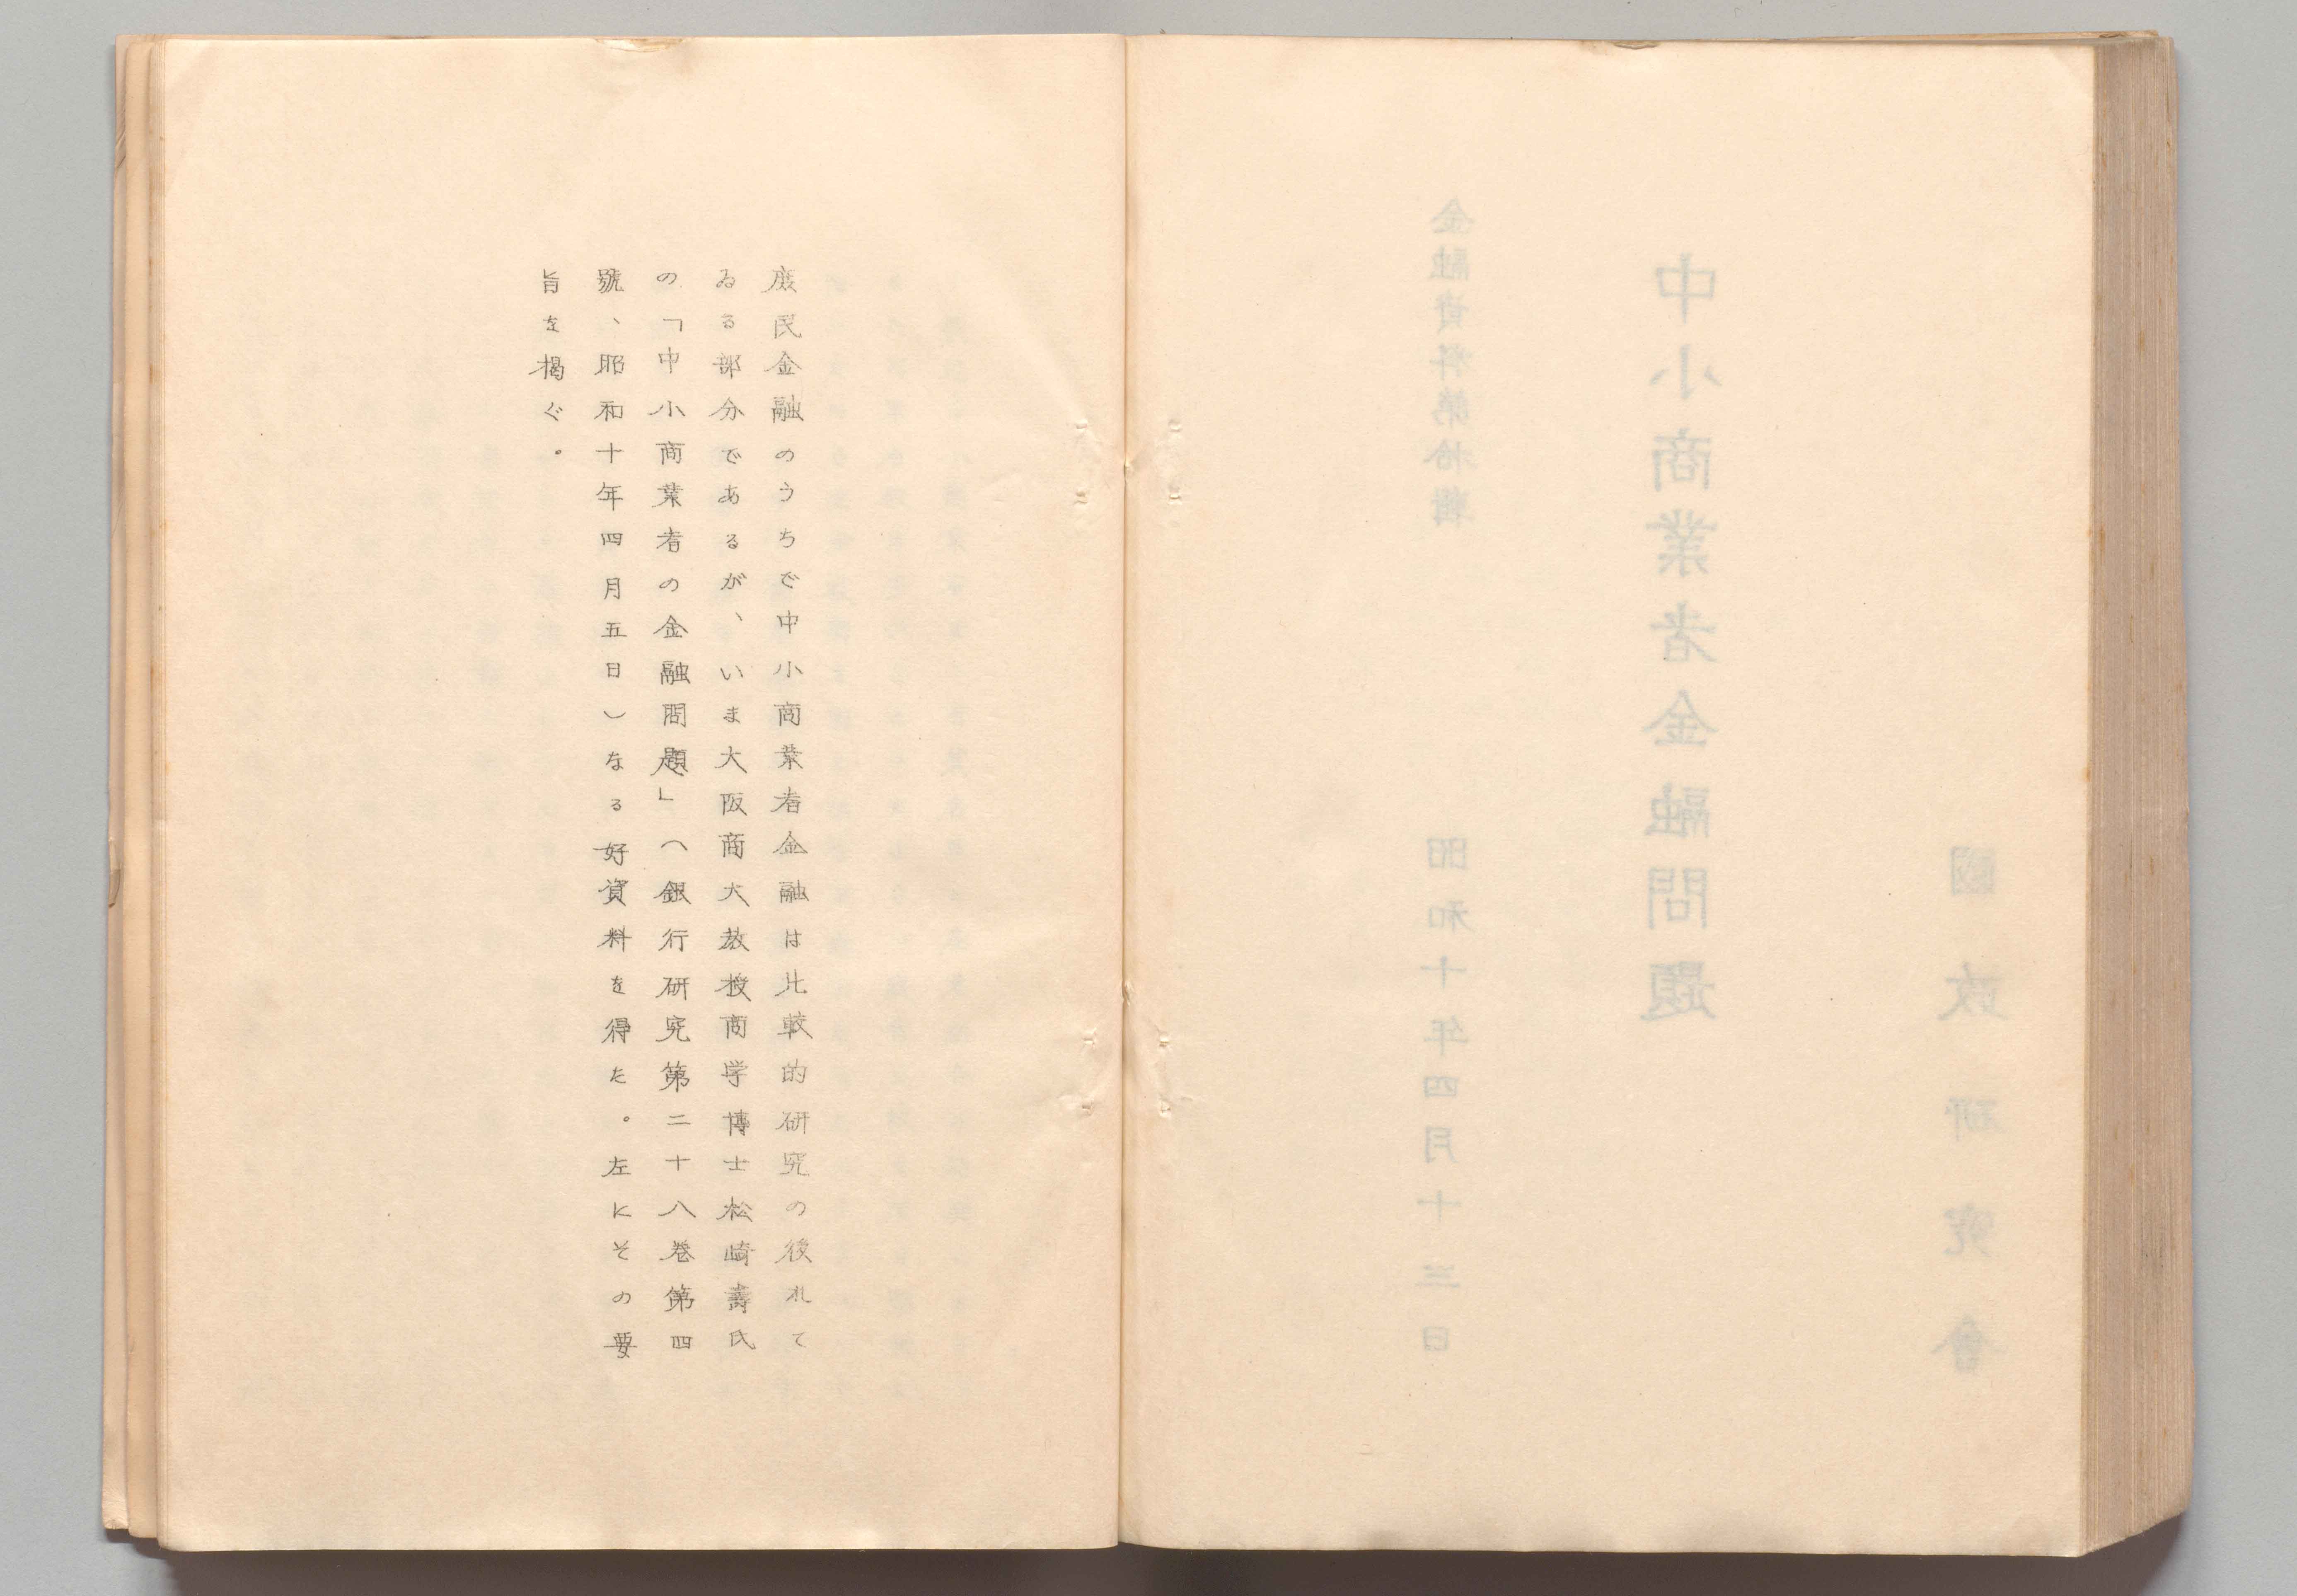 金融資料第拾輯
中小商業者金融問題
昭和十年四月十三日
國政研究會
庶民金融のうちで中小商業者金融は比較的研究の後れて
ゐる部分であるが、いま大阪商大教授商学博士松崎壽氏
の「中小商業者の金融問題」（銀行研究第二十八巻第四
號、昭和十年四月五日）なる好資料を得た。左にその要
旨を掲ぐ。